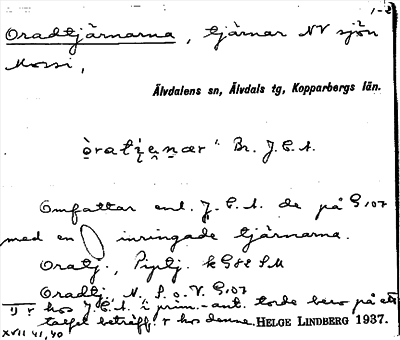 1-2
Oradtjärnarna, tjärnar NV sjön
Mossi,
Älvdalens sn, Älvdals tg, Kopparbergs län.
Br. J.E.A.
Omfattar enl. J.E.A. de på G5,07
med en inringade tjärnarna.
Oratj., Piptj. k G82 SM
Oradtj, N. S. o. V. G5,07
hos J.E.A. i prim.-ant. torde bero på ett
talfel beträff. r hos denne. HELGE LINDBERG 1937.
XVII 41,40